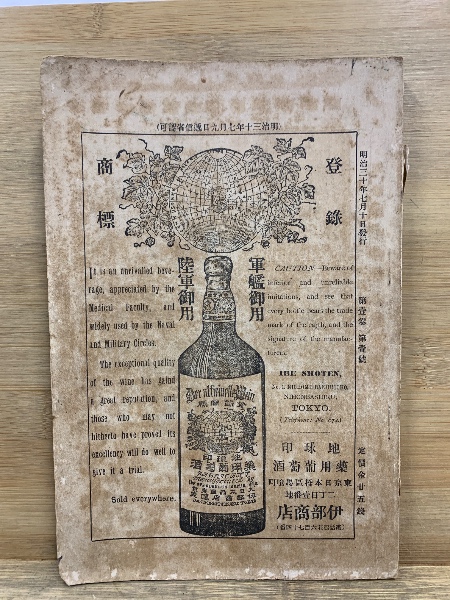 (明治三十年七月九日逓信省認可)
登錄
商標
明治三十年七月十日發行
第壹卷 第壹號
定價金廿五錢
軍艦御用
陸軍御用
It is an unrivalled beve-
rage, appreciated by the
Medical Faculty, and
widely used by the Naval
and Military Circles.
The exceptional quality
of the wine has gained
a great reputation, and
those who may not
hitherto have proved its
excellency will do well to
give it a trial.
Sold everywhere.
CAUTION.—Beware of
inferior and unreliable
imitations, and see that
every bottle bears the trade
mark of the earth, and the
signature of the manufac-
turers.
IBE SHOTEN,
NIHONBASHI-KU,
TOKYO.
地球印
藥用葡萄酒
東京日本橋區
二丁目壹番地
伊部商店
地球印
藥用葡萄酒